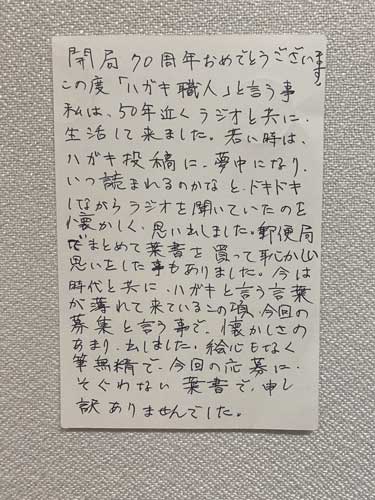 開局70周年おめでとうございます。
この度「ハガキ職人」と言う事
私は、50年近くラジオと共に、
生活して来ました。若い時は、
ハガキ投稿に、夢中になり、
いつ読まれるのかなと、ドキドキ
しながらラジオを聞いていたのを
懐かしく、思い出しました。郵便局
でまとめて葉書を買って恥かしい
思いをした事もありました。今は
時代と共に、ハガキと言う言葉
が薄れて来ているこの頃、今回の
募集と言う事で、懐かしさの
あまり、出しました。絵心もなく
筆無精で、今回の応募に、
そぐわない葉書で、申し
訳ありませんでした。